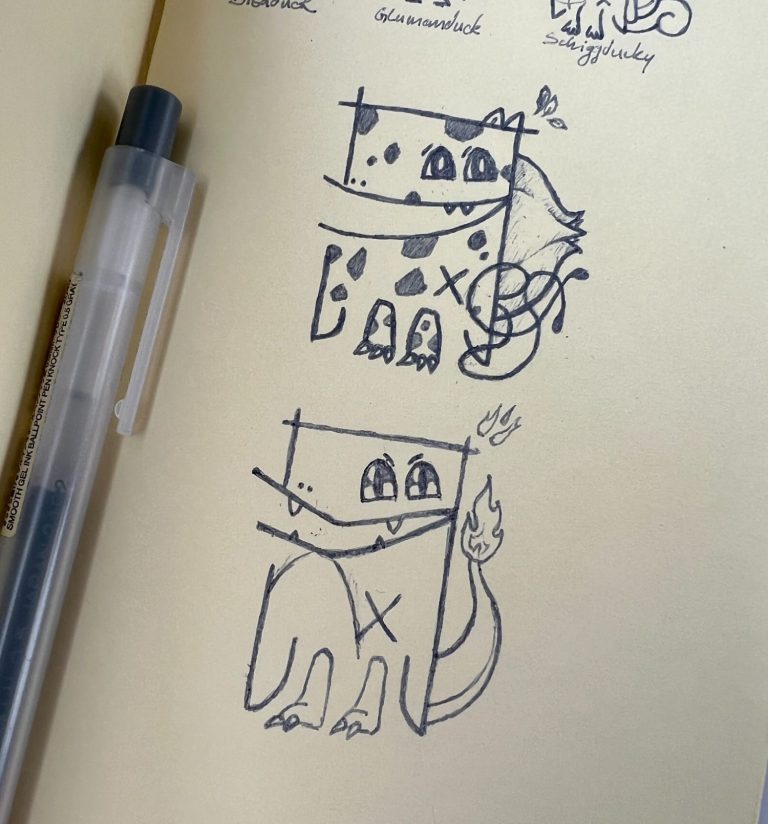 Glumanduck
Schiggducky
SMOOTH GEL INK BALLPOINT PEN KNOCK TYPE 0.5 GRAY